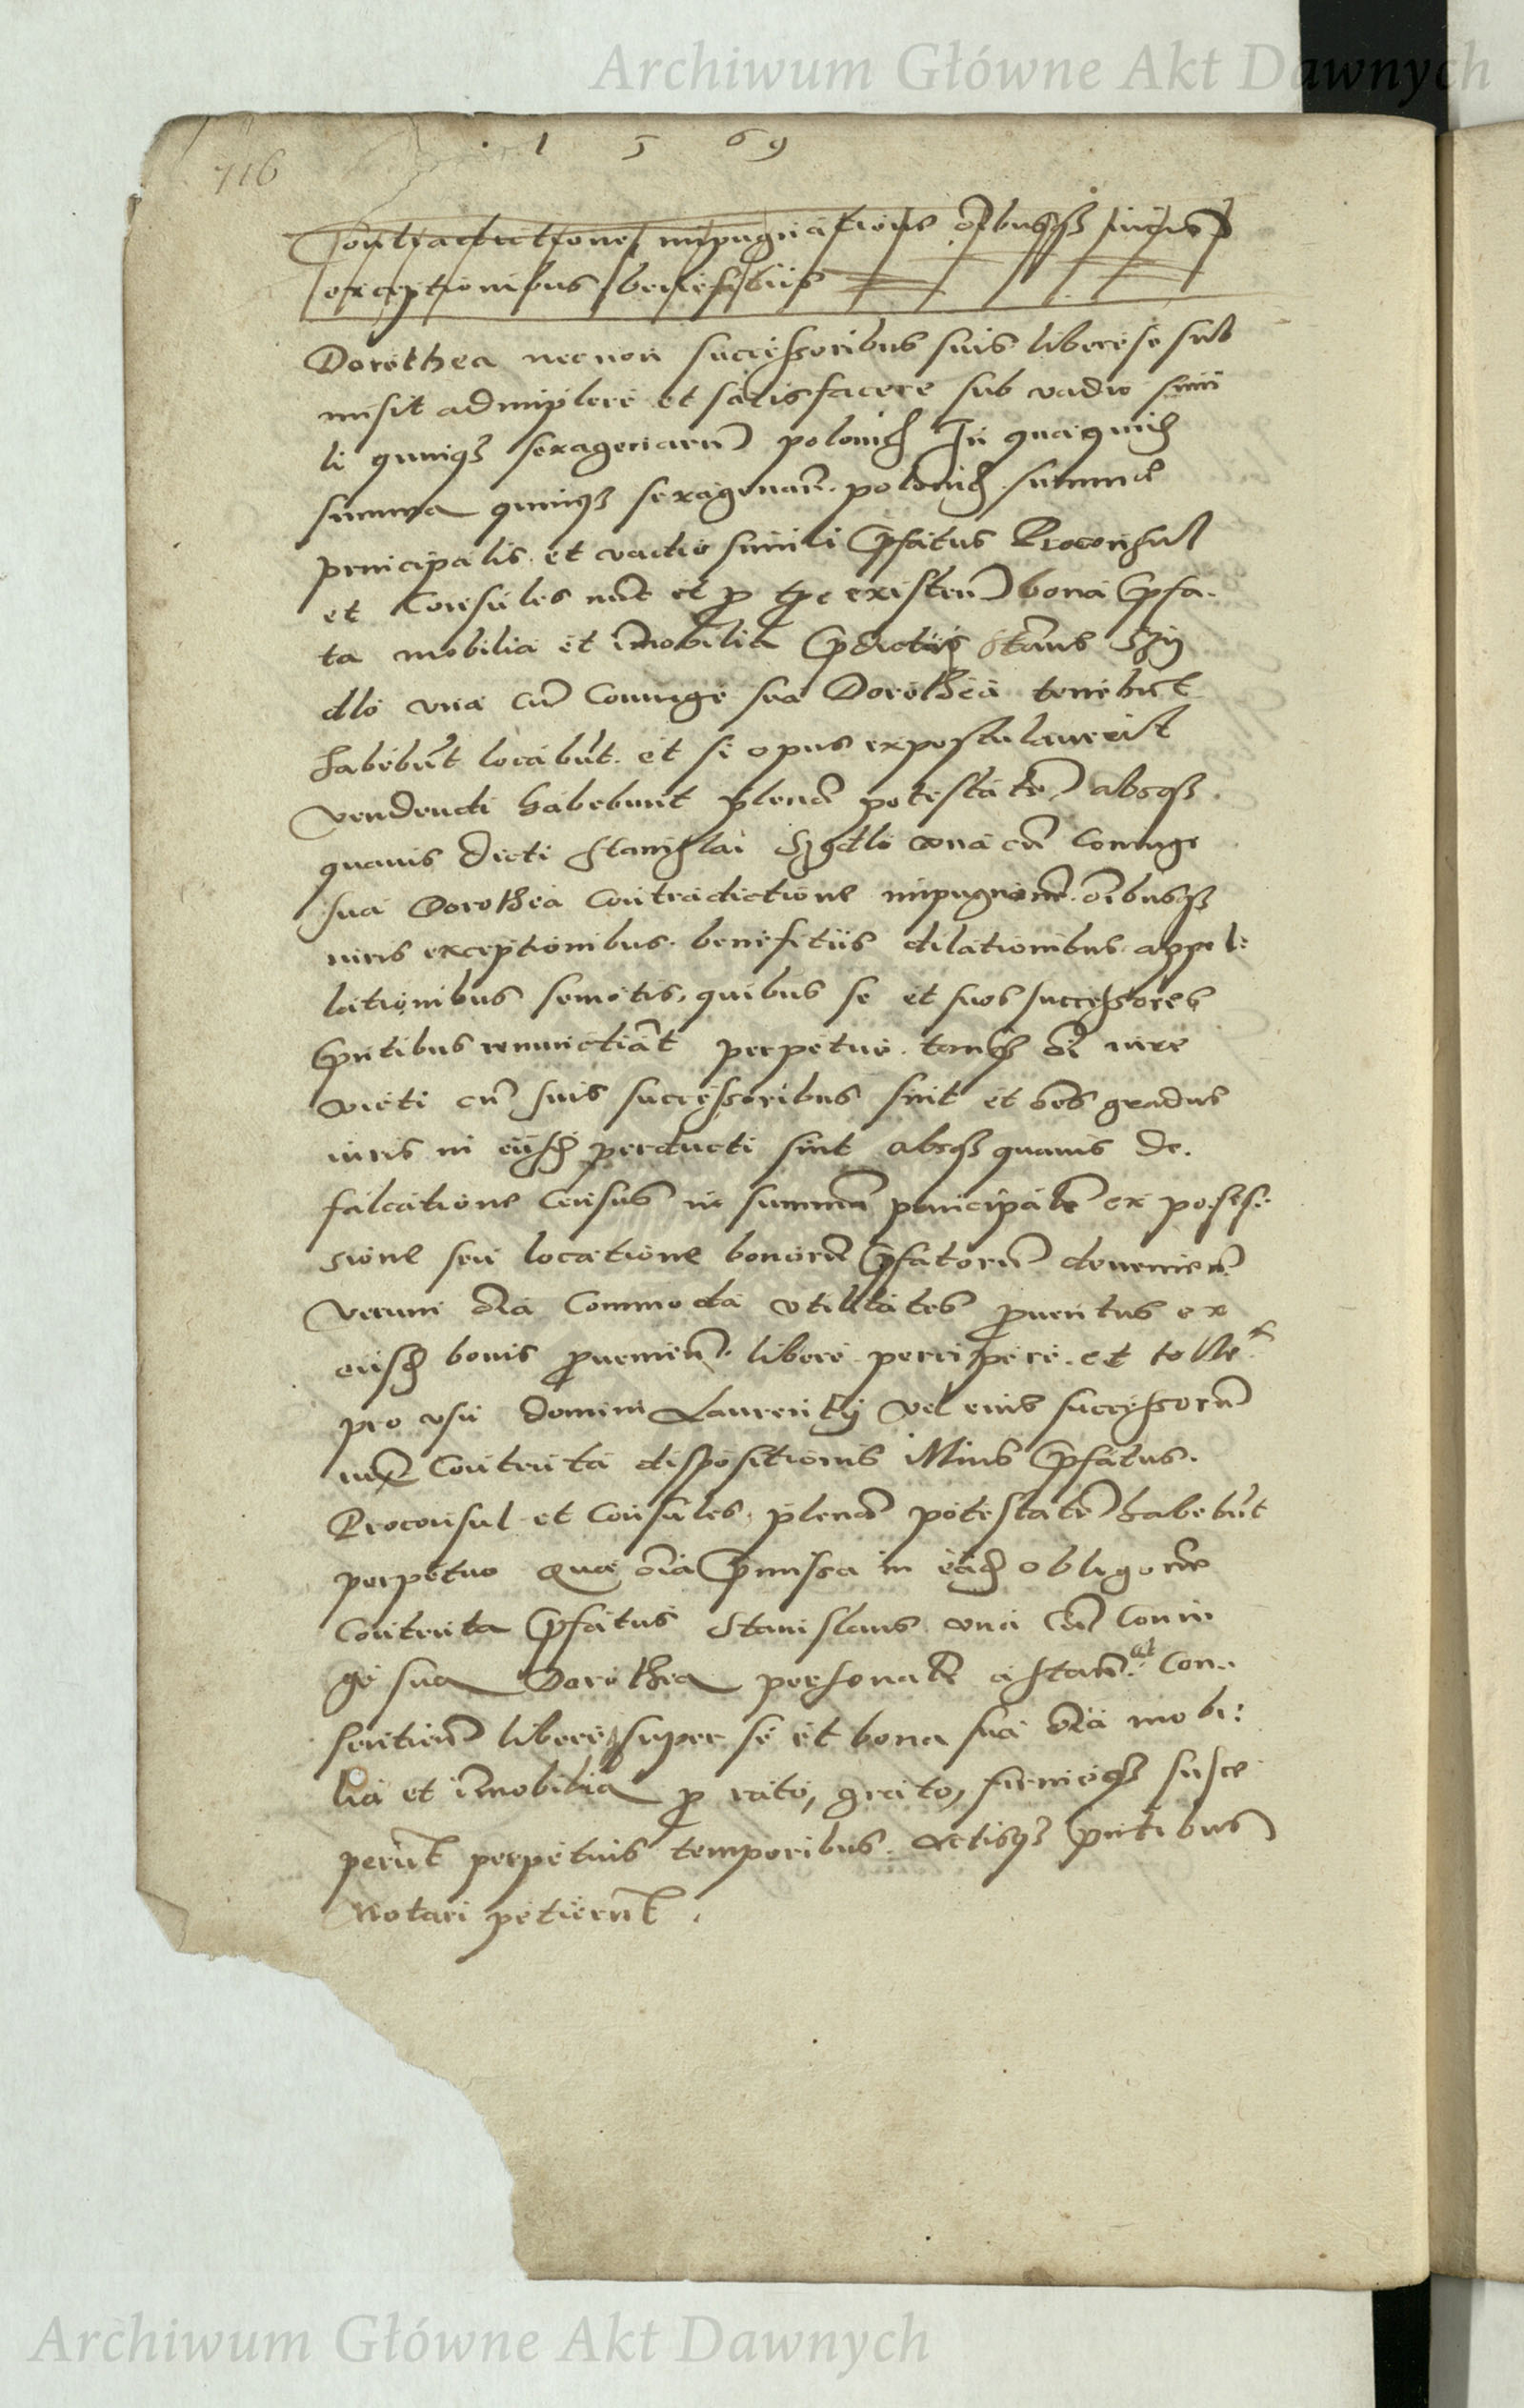 Archiwum Główne Akt Dawnych
1 5 69
716
Contradictione impugnatione oībusqȝ iuris
exceptionibus benefitiis
Dorothea necnon successoribus suis libere se sub
misit adimplere et satisfacere sub vadio simi
li quinqȝ sexagenarū polonicħ In qua quidē
summa quinqȝ sexagenarū polonicħ summe
principalis et vadio simili p̄fatus Proconsul
et Consules nūc et p tpe existeñ bona p̄fa.
ta mobilia et īmobilia p̄dictus Stanis Szy
dlo vna cū Coniuge sua Dorothea tenebūt
habebūt locabūt et si opus expostulauerit
vendendi habebunt plenā potestatē absqȝ
quauis dicti Stanislai Szydlo vna cū Coniuge
sua Dorothea Contradictione impugnone oībusqȝ
iuris exceptionibus benefitiis dilationibus appel:
lationibus semotis, quibus se et suos successores
p̄ntibus renunctiāt perpetue tanqȝ oī iure
victi cū suis successoribus sint et oēs gradus
iuris in eiusd perducti sint absqȝ quauis de.
falcatione Census in summā principalē ex posses:
sione seu locatione bonorū p̄fatorū deuenieñ
Verum oīa Commoda vtilitates prouentus ex
eisd bonis prouenieñ libere percipere et tolle
pro vsu domini Laurentÿ vel eius successorū
iux Contenta dispositionis illius p̄fatus.
Proconsul et Consules plenā potestatē habebūt
perpetuo Que oīa p̄missa in eād obligoñe
Contenta p̄fatus Stanislaus vna cū Coniu
ge sua Dorothea personalr astañ. at Con:
sentieñ libere super se et bona sua oīa mobi:
lia et īmobilia p rato, grato, firmoqȝ susce
perūt perpetuis temporibus Actisqȝ p̄ntibus
Notari petierūt.
Archiwum Główne Akt Dawnych